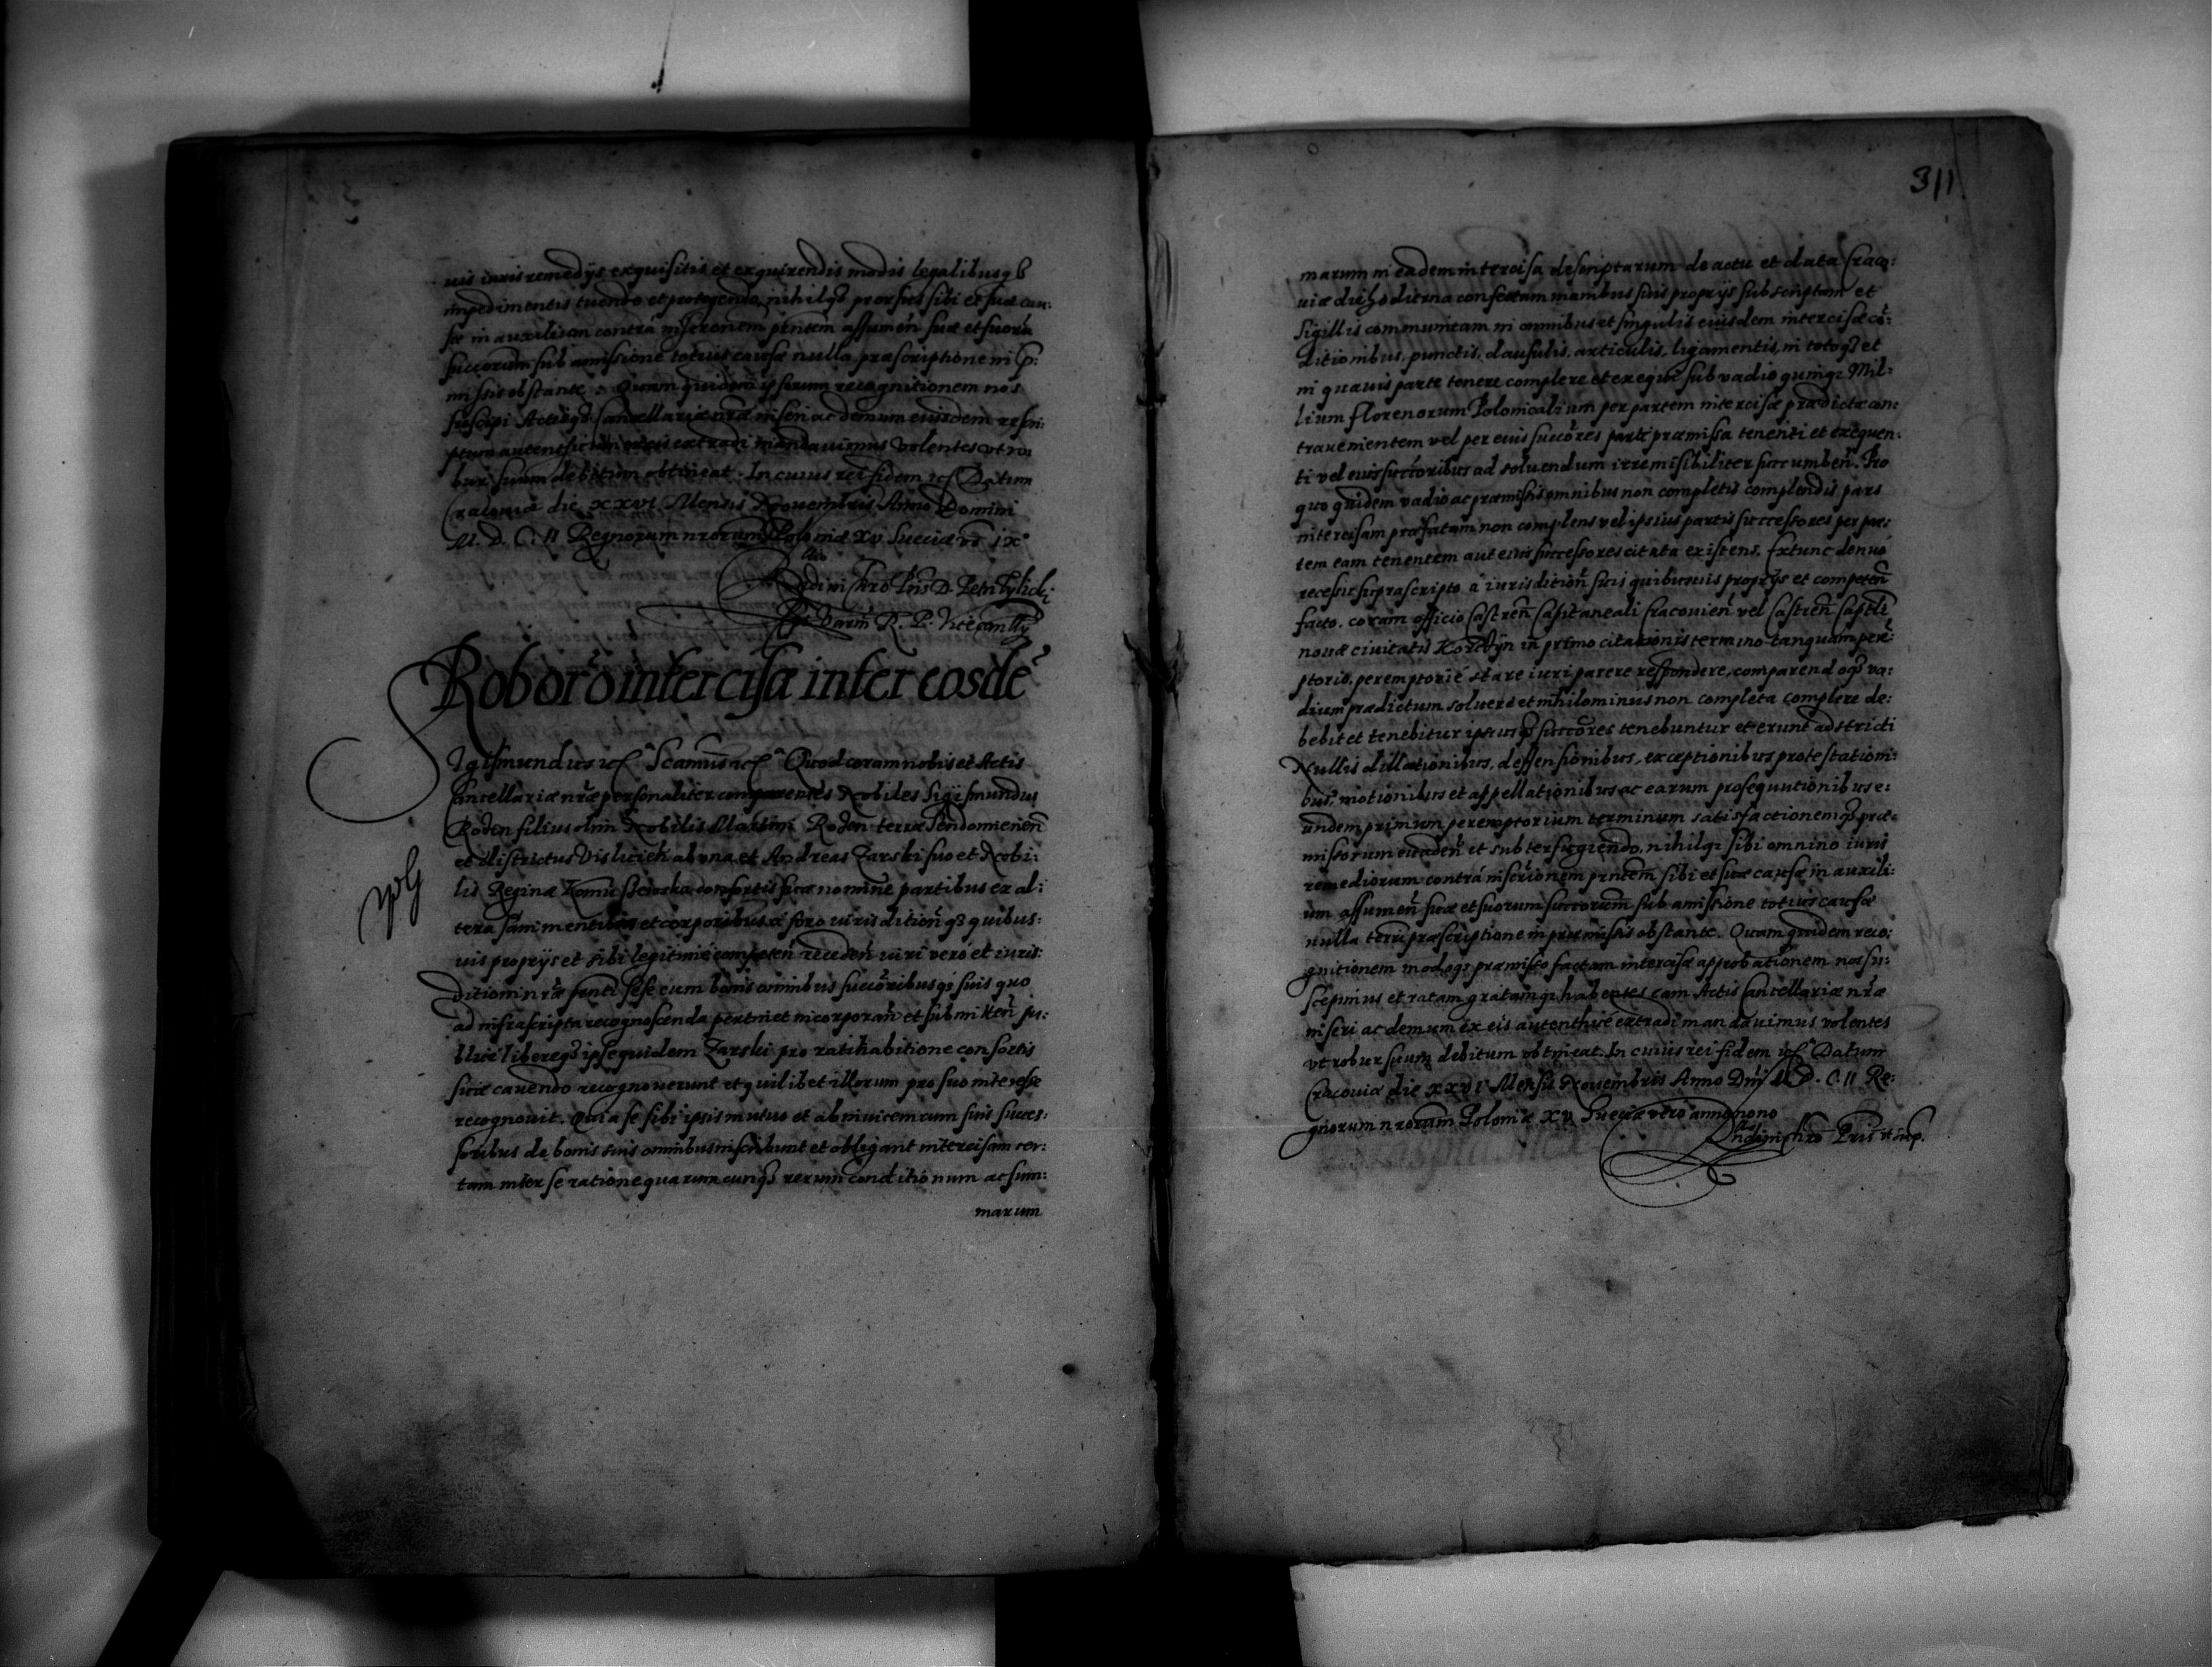 uis iuris remedijs exquisitis et exquirendis modis legalibusq3
impedimentis tuendo et protegendo, nihilq3 prorsus sibi et suæ cau:
sæ in auxilium contrà inscrõnem pñtem assumeñ suæ et suorũ
succorum sub amissione totius causæ nulla præscriptione in p̃:
missis obstante. Quam quidem ipsorum recognitionem nos
suscipi Actisq3 Cancellariæ nr̃æ inseri ac demum eiusdem rescri:
ptum autenthicum extradi mandauimus volentes vt ro:
bur suum debitum obtineat. In cuius rei fidem etc̃ Datum
Cracouiæ die XXVI Mensis Nouembris Anno Domini
M. D. C. II Regnorum nrorum Poloniæ XV Sueciæ vo IX°
Rndi in Chro Pris D. Petri Tylicki
Varm̃ R. P. Vicecanlly
Roborõ intercisa inter eosdẽ
Sigismundus etc̃ Scamus etc̃ Quod coram nobis et Actis
Cancellariæ nr̃æ personaliter comparentes Nobiles Sigismundus
Roden filius olim Nobilis Martini Roden terræ Sendomirieñ
et districtus Visliceñ ab vna et Andreas Zarski suo et Nobi:
lis Reginæ consortis suæ nomine partibus ex al:
tera sani mentibus et corporibus à foro iurisditioñq3 quibus:
uis proprijs et sibi legitimè competeñ recedeñ iuri verò et iuris:
ditioni nr̃æ pñti sese cum bonis omnibus succõribusq3 suis quo
ad infrascripta recognoscenda pertinet incorporañ et submitteñ pu:
blicè libereq3 ipse quidem Zarski pro ratihabitione consortis
suæ cauendo recognouerunt et quilibet illorum pro suo interesse
recognouit. Quia se sibi ipsis mutuo et ab inuicem cum suis succes:
soribus de bonis suis omnibus inscribunt et obligant intercisam cer:
tam inter se ratione quarumcunq3 rerum conditionum ac sum:
marum
311
marum in eadem intercisa descriptarum de actu et data Craco:
uiæ die hodierna confectam manibus suis proprijs subscriptam et
Sigillis communitam in omnibus et singulis eiusdem intercisæ cõ:
ditionibus, punctis, clausulis, articulis, ligamentis, in totoq3 et
in quauis parte tenere complere et exequi sub vadio quinq3 Mil:
lium florenorum Polonicalium per partem intercisæ prædictæ con:
trauenientem vel per eius succõres parti præmissa tenenti et exequen:
ti vel eius succõribus ad soluendum irremisibiliter succumbeñ. Pro
quo quidem vadio ac præmissis omnibus non completis complendis pars
intercisam præfatam non complens vel ipsius partis successores per par:
tem eam tenentem aut eius successores citata existens. Extunc denuò
recessu suprascripto à iurisditioñ suis quibusuis proprijs et competeñ
facto. coram officio Castreñ Capitaneali Cracouieñ vel Castreñ Captli
nouæ ciuitatis Korczyn in primo citationis termino tanquam perẽ:
ptorio, peremptoriè stare iuri parere respondere, comparendoq3 va:
dium prædictum soluere et nihilominus non completa complere de:
bebit et tenebitur ipsiusq3 succõres tenebuntur et erunt adstricti
Nullis dillationibus, deffensionibus, exceptionibus protestationi:
bus, motionibus et appellationibus ac earum prosequutionibus e:
undem primum peremptorium terminum satisfactionemq3 præ:
missorum euadeñ et subterfugiendo, nihilq3 sibi omnino iuris
remediorum contrà inscriõnem pñtem sibi et suæ causæ in auxili:
um assumeñ suæ et suorum succorum sub amissione totius causæ
nulla terrũ præscriptione in præmissis obstante. Quam quidem reco:
gnitionem modoq3 præmisso factam intercisæ approbationem nos su:
scepimus et ratam gratamq3 habentes eam Actis Cancellariæ nr̃æ
inseri ac demum ex eis autenthicè extradi mandauimus volentes
vt robur suum debitum obtineat. In cuius rei fidem etc̃ Datum
Cracouiæ die XXVI Mensis Nouembris Anno Dni M. D. C. II Re:
gnorum nrorum Poloniæ XV Sueciæ vero anno nono
Rndi in Chro Pris vt sup.